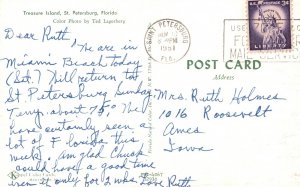 Treasure Island, St. Petersburg, Florida
Color Photo by Ted Lagerberg
Dear Ruth,
We are in
Miami Beach today
(Sat.) Will return to
St. Petersburg Sunday
Temp. about 78°. We
have certainly seen a
lot of Florida this
week. Am glad Chuck
could have a good time
even if only for 2 wks. Love Ruth
ST. PETERSBURG
PM
1957
FLA.
U.S. POSTAGE 3¢
LIBERTY
POST CARD
Address
Mrs. Ruth Holmes
1016 Roosevelt
Ames
Iowa